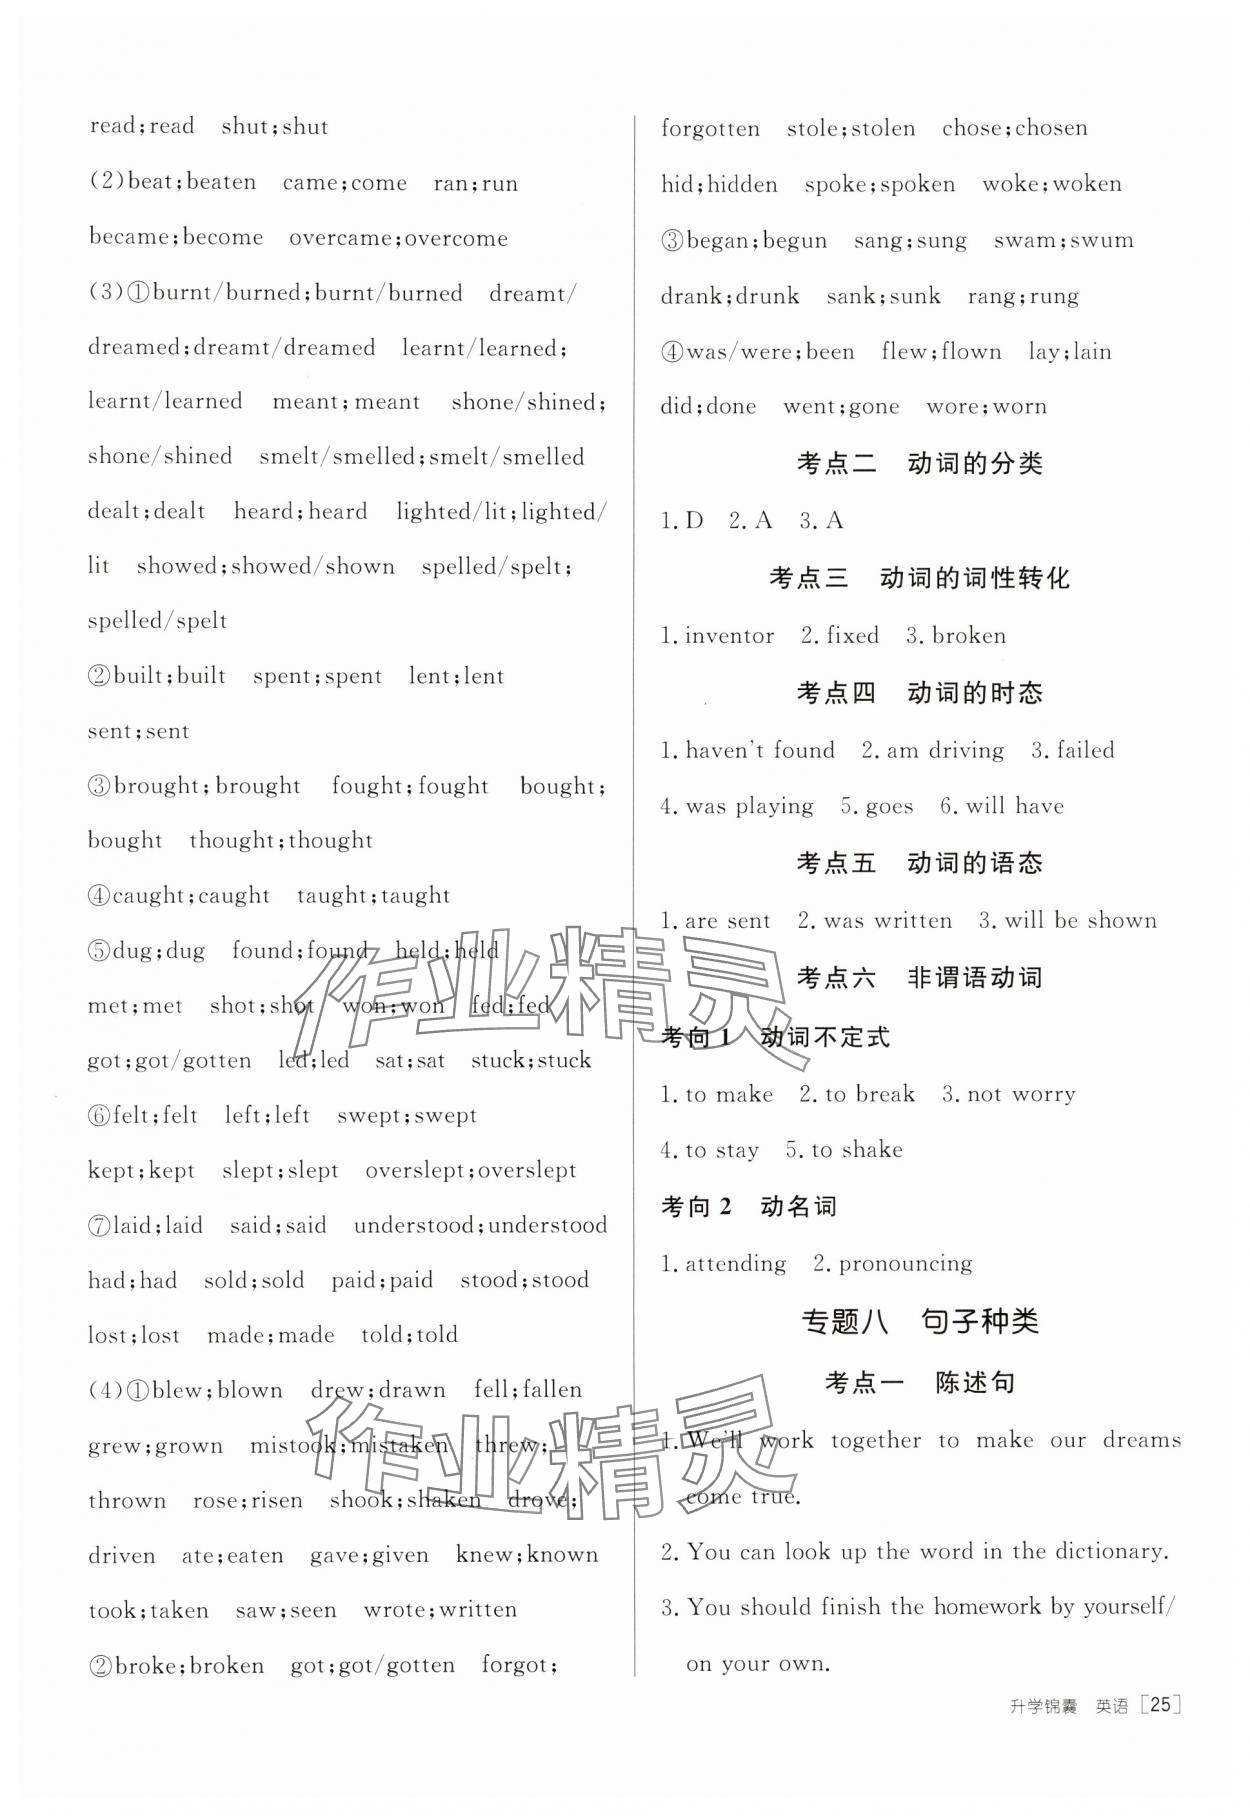 read;read shut;shut
(2)beat;beaten came;come ran;run
became;become overcame;overcome
(3)①burnt/burned;burnt/burned dreamt/
dreamed;dreamt/dreamed learnt/learned;
learnt/learned meant;meant shone/shined;
shone/shined smelt/smelled;smelt/smelled
dealt;dealt heard;heard lighted/lit;lighted/
lit showed;showed/shown spelled/spelt;
spelled/spelt
②built;built spent;spent lent;lent
sent;sent
③brought;brought fought;fought bought;
bought thought;thought
④caught;caught taught;taught
⑤dug;dug found;found held;held
met;met shot;shot won;won fed;fed
got;got/gotten led;led sat;sat stuck;stuck
⑥felt;felt left;left swept;swept
kept;kept slept;slept overslept;overslept
⑦laid;laid said;said understood;understood
had;had sold;sold paid;paid stood;stood
lost;lost made;made told;told
(4)①blew;blown drew;drawn fell;fallen
grew;grown mistook;mistaken threw;
thrown rose;risen shook;shaken drove;
driven ate;eaten gave;given knew;known
took;taken saw;seen wrote;written
②broke;broken got;got/gotten forgot;
forgotten stole;stolen chose;chosen
hid;hidden spoke;spoken woke;woken
③began;begun sang;sung swam;swum
drank;drunk sank;sunk rang;rung
④was/were;been flew;flown lay;lain
did;done went;gone wore;worn
考点二 动词的分类
1. D 2. A 3. A
考点三 动词的词性转化
1. inventor 2. fixed 3. broken
考点四 动词的时态
1. haven't found 2. am driving 3. failed
4. was playing 5. goes 6. will have
考点五 动词的语态
1. are sent 2. was written 3. will be shown
考点六 非谓语动词
考向 1 动词不定式
1. to make 2. to break 3. not worry
4. to stay 5. to shake
考向 2 动名词
1. attending 2. pronouncing
专题八 句子种类
考点一 陈述句
1. We'll work together to make our dreams
come true.
2. You can look up the word in the dictionary.
3. You should finish the homework by yourself/
on your own.
升学锦囊 英语 [25]
作业精灵
作业精灵